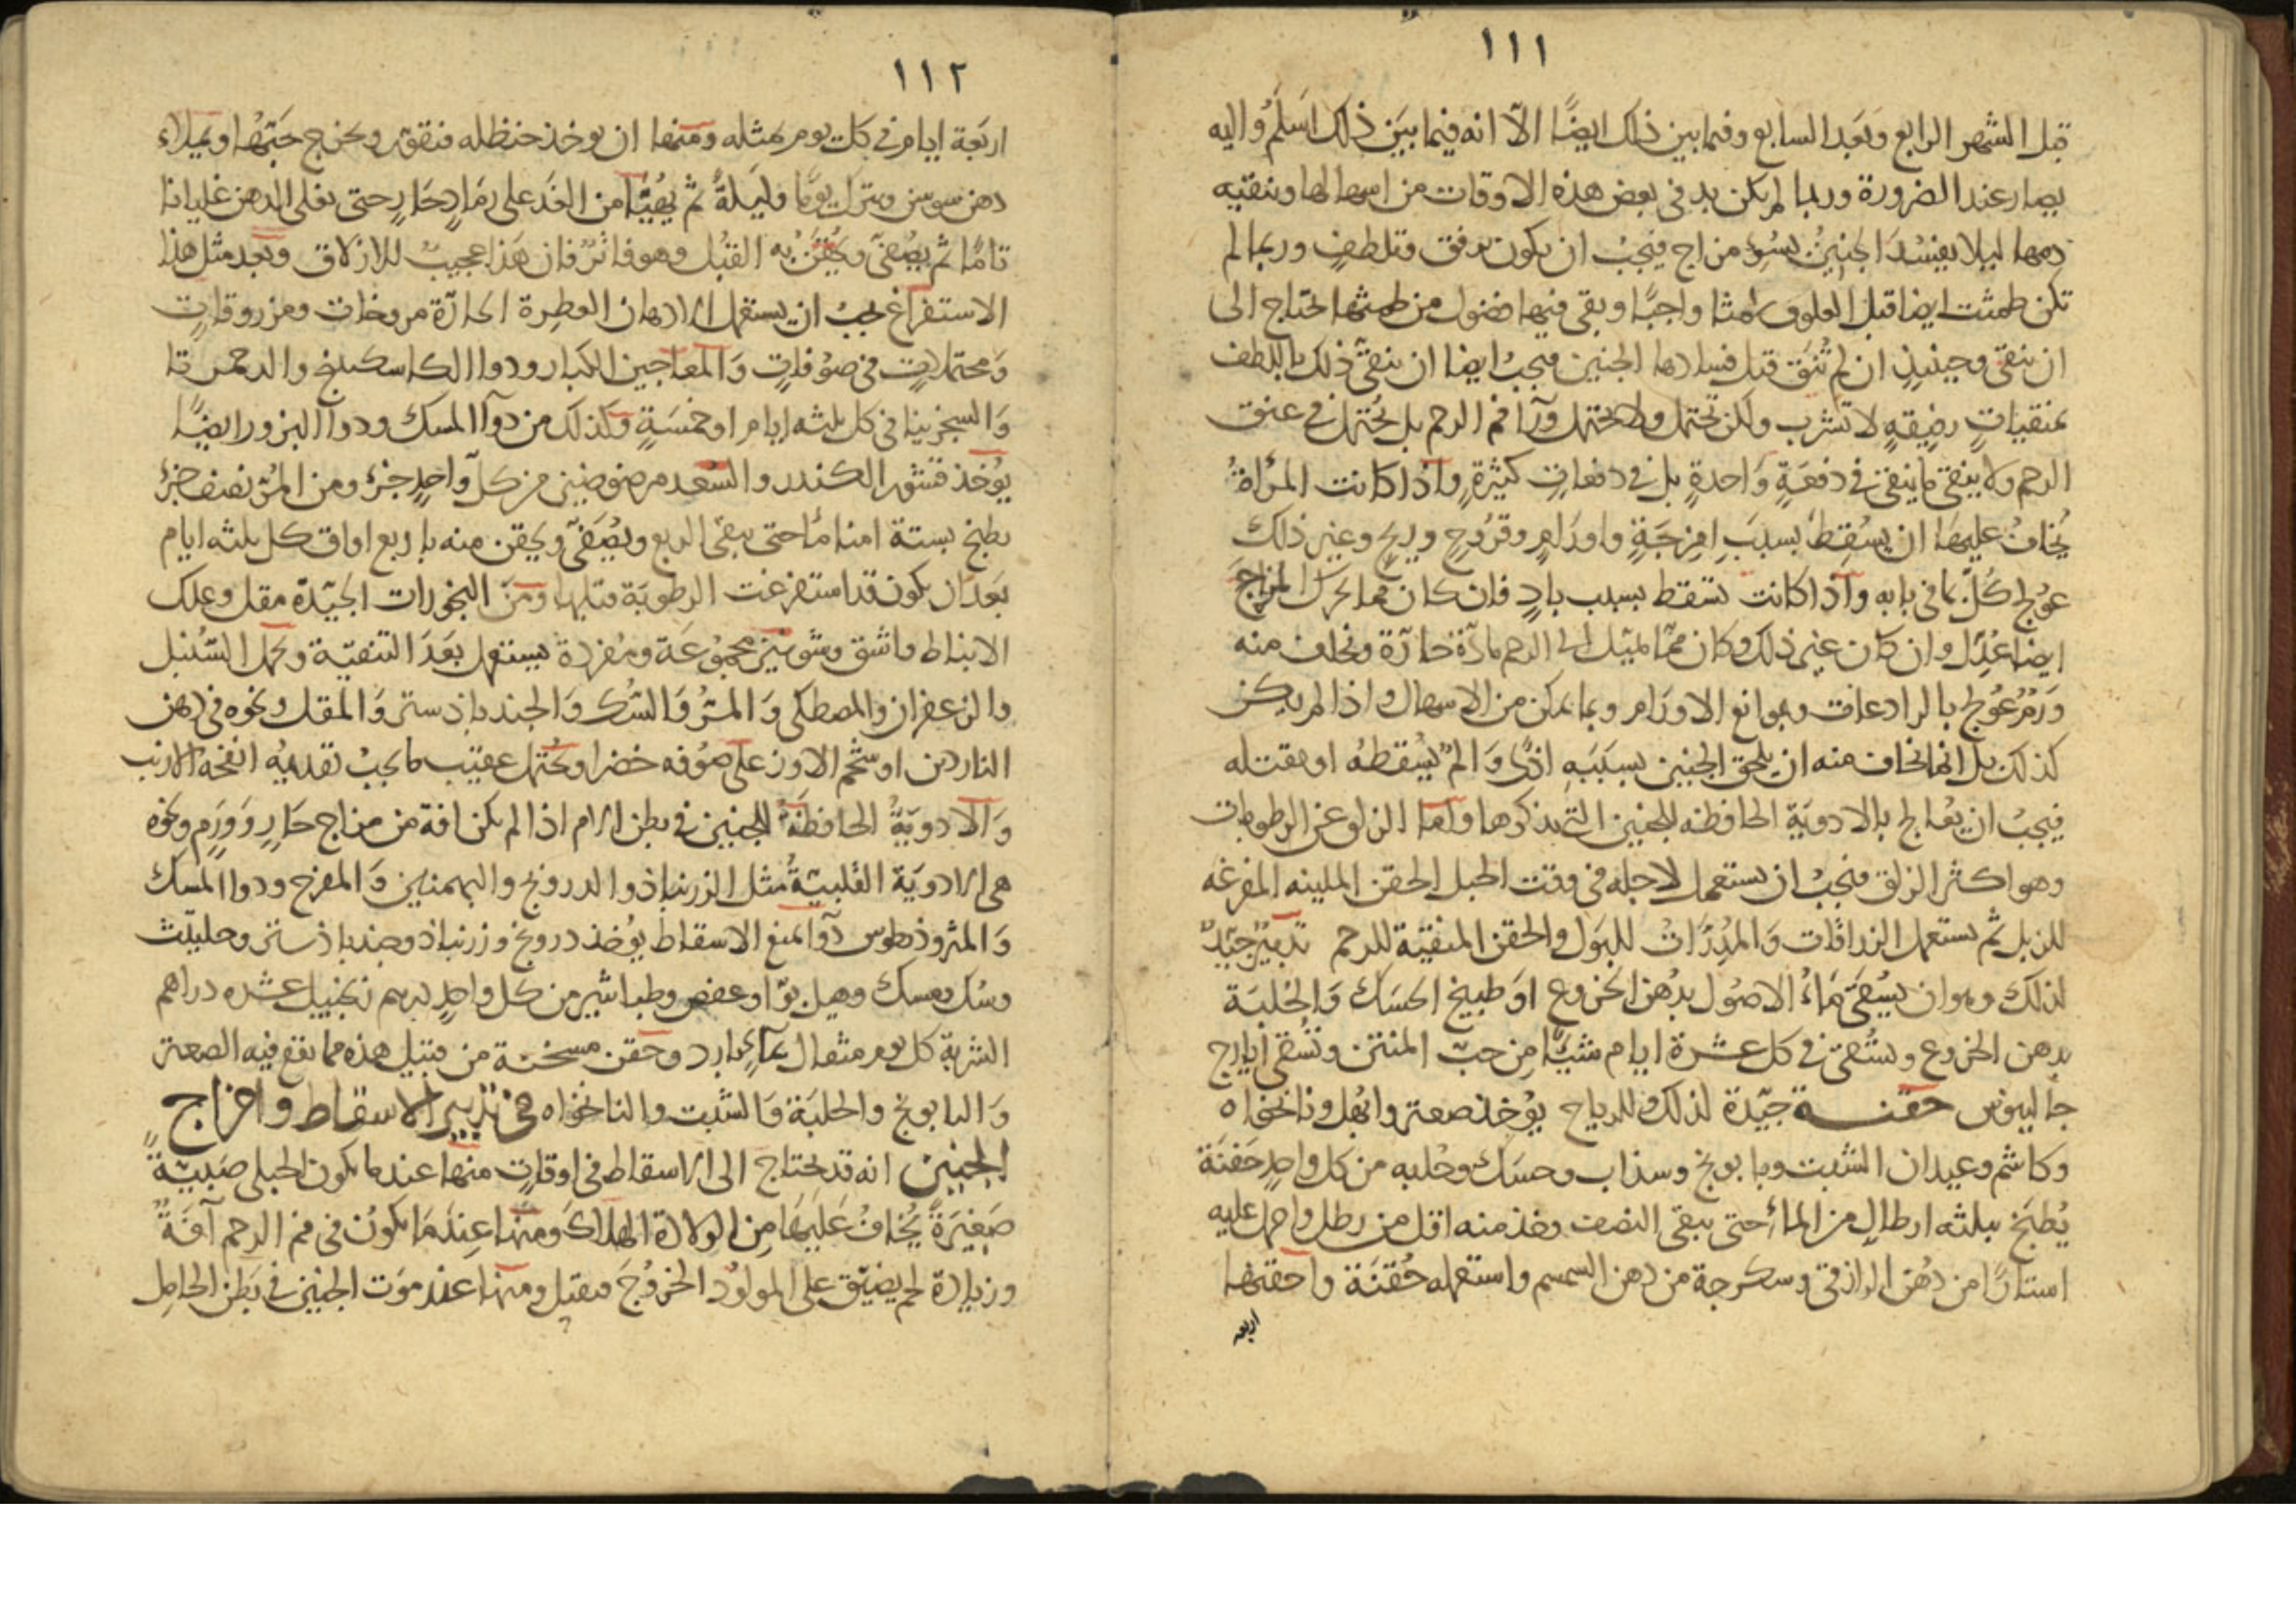 ١١١
قبل الشهر الرابع وبعد السابع وفيما بين ذلك ايضًا الّا انه فيما بين ذلك اسلَمُ واليه
يصار عند الضرورة وربما لم يكن بد في بعض هذه الاوقات من اسهالها وتنقيه
دمها ليلا يفسُدَ الجنينُ بسُوءِ مزاج فيجبُ ان يكون برفق وتلطفٍ وربما لم
تكن طمثت ايضا قبل العلوق طمثا واجبًا وبقى فيها فضول من طمثها احتاج الى
ان ينقى وحينيذٍ ان لم تُنَقّ قبل فسادها الجنين فيجبُ ايضا ان ينقّى ذلك باللطف
بمنقياتٍ رفيقهٍ لا تشرب ولكن تحتمل ولا تحتمل ورآ فم الرحم بل تُحتمل في عنق
الرحم ولا ينقى ما ينقى في دفعَةٍ وَاحدةٍ بل في دفعاتٍ كثيرةٍ واذا كانت المرأةُ
يُخافُ عليهَا ان يسُقِطَ بسببِ امزجَةٍ واورَامٍ وقرُوحٍ وريحٍ وغير ذلك
عوُلج كُلّ بما في بابه واذا كانت تسقط بسبب بادٍ فان كان مما يحرك المزاجَ
ايضا عُدِّل وان كان غير ذلك وكان ممّا يميّل الى الرحم مادّة حارّة ويخاف منه
وَرَمُ عُولج بالرادعات وبموانع الاورَام وبما يمكن من الاسهال واذا لم يكن
كذلك بل انما يخاف منه ان يلحق الجنين بسَبَبِهِ اذًى وَالمٌ يسُقطهُ او يقتله
فيجبُ ان يعُالج بالادويَة الحافظه للجنين التي نذكرها واما الزلق عن الرطوبات
وهو اكثر الزلق فيجبُ ان يستعمل لاجله في وقت الحبل الحقن الملينه المفرغه
للزبل ثم يستعمل الزراقات وَالمُدِرَّاتُ للبَول والحقن المنقيّة للرحم تدبيرٌ جيّدٌ
لذلك وهو ان يسُقَى مَاءُ الاصُول بدُهن الخروع او طبيخ الحسَك وَالحُلبَة
بدهن الخروع وتسُقى في كل عشرة ايام شيئًا مِن حبّ المنتن وتسُقى ايارج
جالينوس حقنــة جيّدة لذلك وللرياح يوُخذ صعتر وابهُل ونانخواه
وكاشم وعيدان الشبت وبابونج وسذاب وحسَك وحُلبه من كل واحدٍ حَفنَة
يُطبَخ بثلثه ارطالٍ من الماءِ حتى يبقى النصف وخذ منه اقل من رطل واحمل عليه
استارًا من دُهن الرازقى وسكرجة من دهن السمسم واستعمله حُقنَة واحقنها
اربعه
١١٢
اربَعة ايام في كل يوم بمثله ومنها ان يوخذ حنظله فتقوّر ويخرج حَبّهُا ويملاء
دهن سوسن ويترك يومًا وليَلةً ثم يهُيّا من الغَد على رمَادٍ حَارٍ حتى يغلى الدهن غليانا
تامًا ثم يصُفّى ويُحقَنُ به القبُل وهو فاتر فان هَذا عجيبٌ للازلاق وبعد مثل هذا
الاستفراغ يجبُ ان يستعمل الادهان العطِرة الحارّة مروخات ومزروقاتٍ
وَمحتملاتٍ في صوُفاتٍ وَالمعاجين الكبار ودوا الكاسكبنج والدحمرتا
وَالسجزنيا في كل ثلثه ايام او خمسَةٍ وكذلك من دوآ المسك ودوآ البزور ايضًا
يوُخذ قشور الكندر والسُعد مرضوضين من كل وَاحدٍ جزءُ ومن المُرّ نصف جزءُ
يطبخ بستة امنا مآءً حتى يبقى الربع ويصُفَّى ويحقن منه باربع اواق كل ثلثه ايام
بعَد ان يكون قد استفرغت الرطوبَة قبلها ومَن البخورات الجيّدة مقل وعلك
الانباط واشق وشونيز مجموُعَة ومفردة يستعمل بعَدَ التنقيَة ويحمل السُنبل
والزعفران والمصطكى وَالمُرّ وَالسُك وَالجندباذستر وَالمقل ونحوه في دهن
الناردين او شحم الاوز على صوُفه خضرا ويُحتمل عقيب ما يجبُ تقديمُه انفحهَ الارنب
وَالادويَةُ الحافظَةُ للجنين في بطن الام اذا لم يكن افة من مزاج حَارٍ وَوَرَمٍ ونحوه
هي الادويَة القلبيّةُ مثل الزرنباذ والدرونج والبهمنين وَالمفرح ودوا المسك
وَالمثروذيطوس دوآ لمنع الاسقاط يوُخذ درونج وزرنباذ وجندباذستر وحلتيت
وسُك ومسك وهيل بوّا وعفص وطباشير من كل واحدٍ درهم زنجبيل عشره دراهم
الشربة كل يوم مثقال بمآءٍ بارد وحقن مسخنة من قبيل هذه مما يقع فيه الصعتر
وَالبابونج والحلبَة وَالشبت والنانخواه في تدبير الاسقاط واخراج
الجنين انه قد يحتاج الى الاسقاط في اوقاتٍ منها عند ما يكون الحبلى صَبيّةً
صَغيرَةً يُخافُ عَليَها مِن الولادة الهلاك ومنها عِندَمَا يكوُن في فم الرحم آفَةٌ
وزيادة لحم يضيّق على المولوُد الخروُجَ فيقتل ومنها عند موَت الجنين في بَطن الحامِل